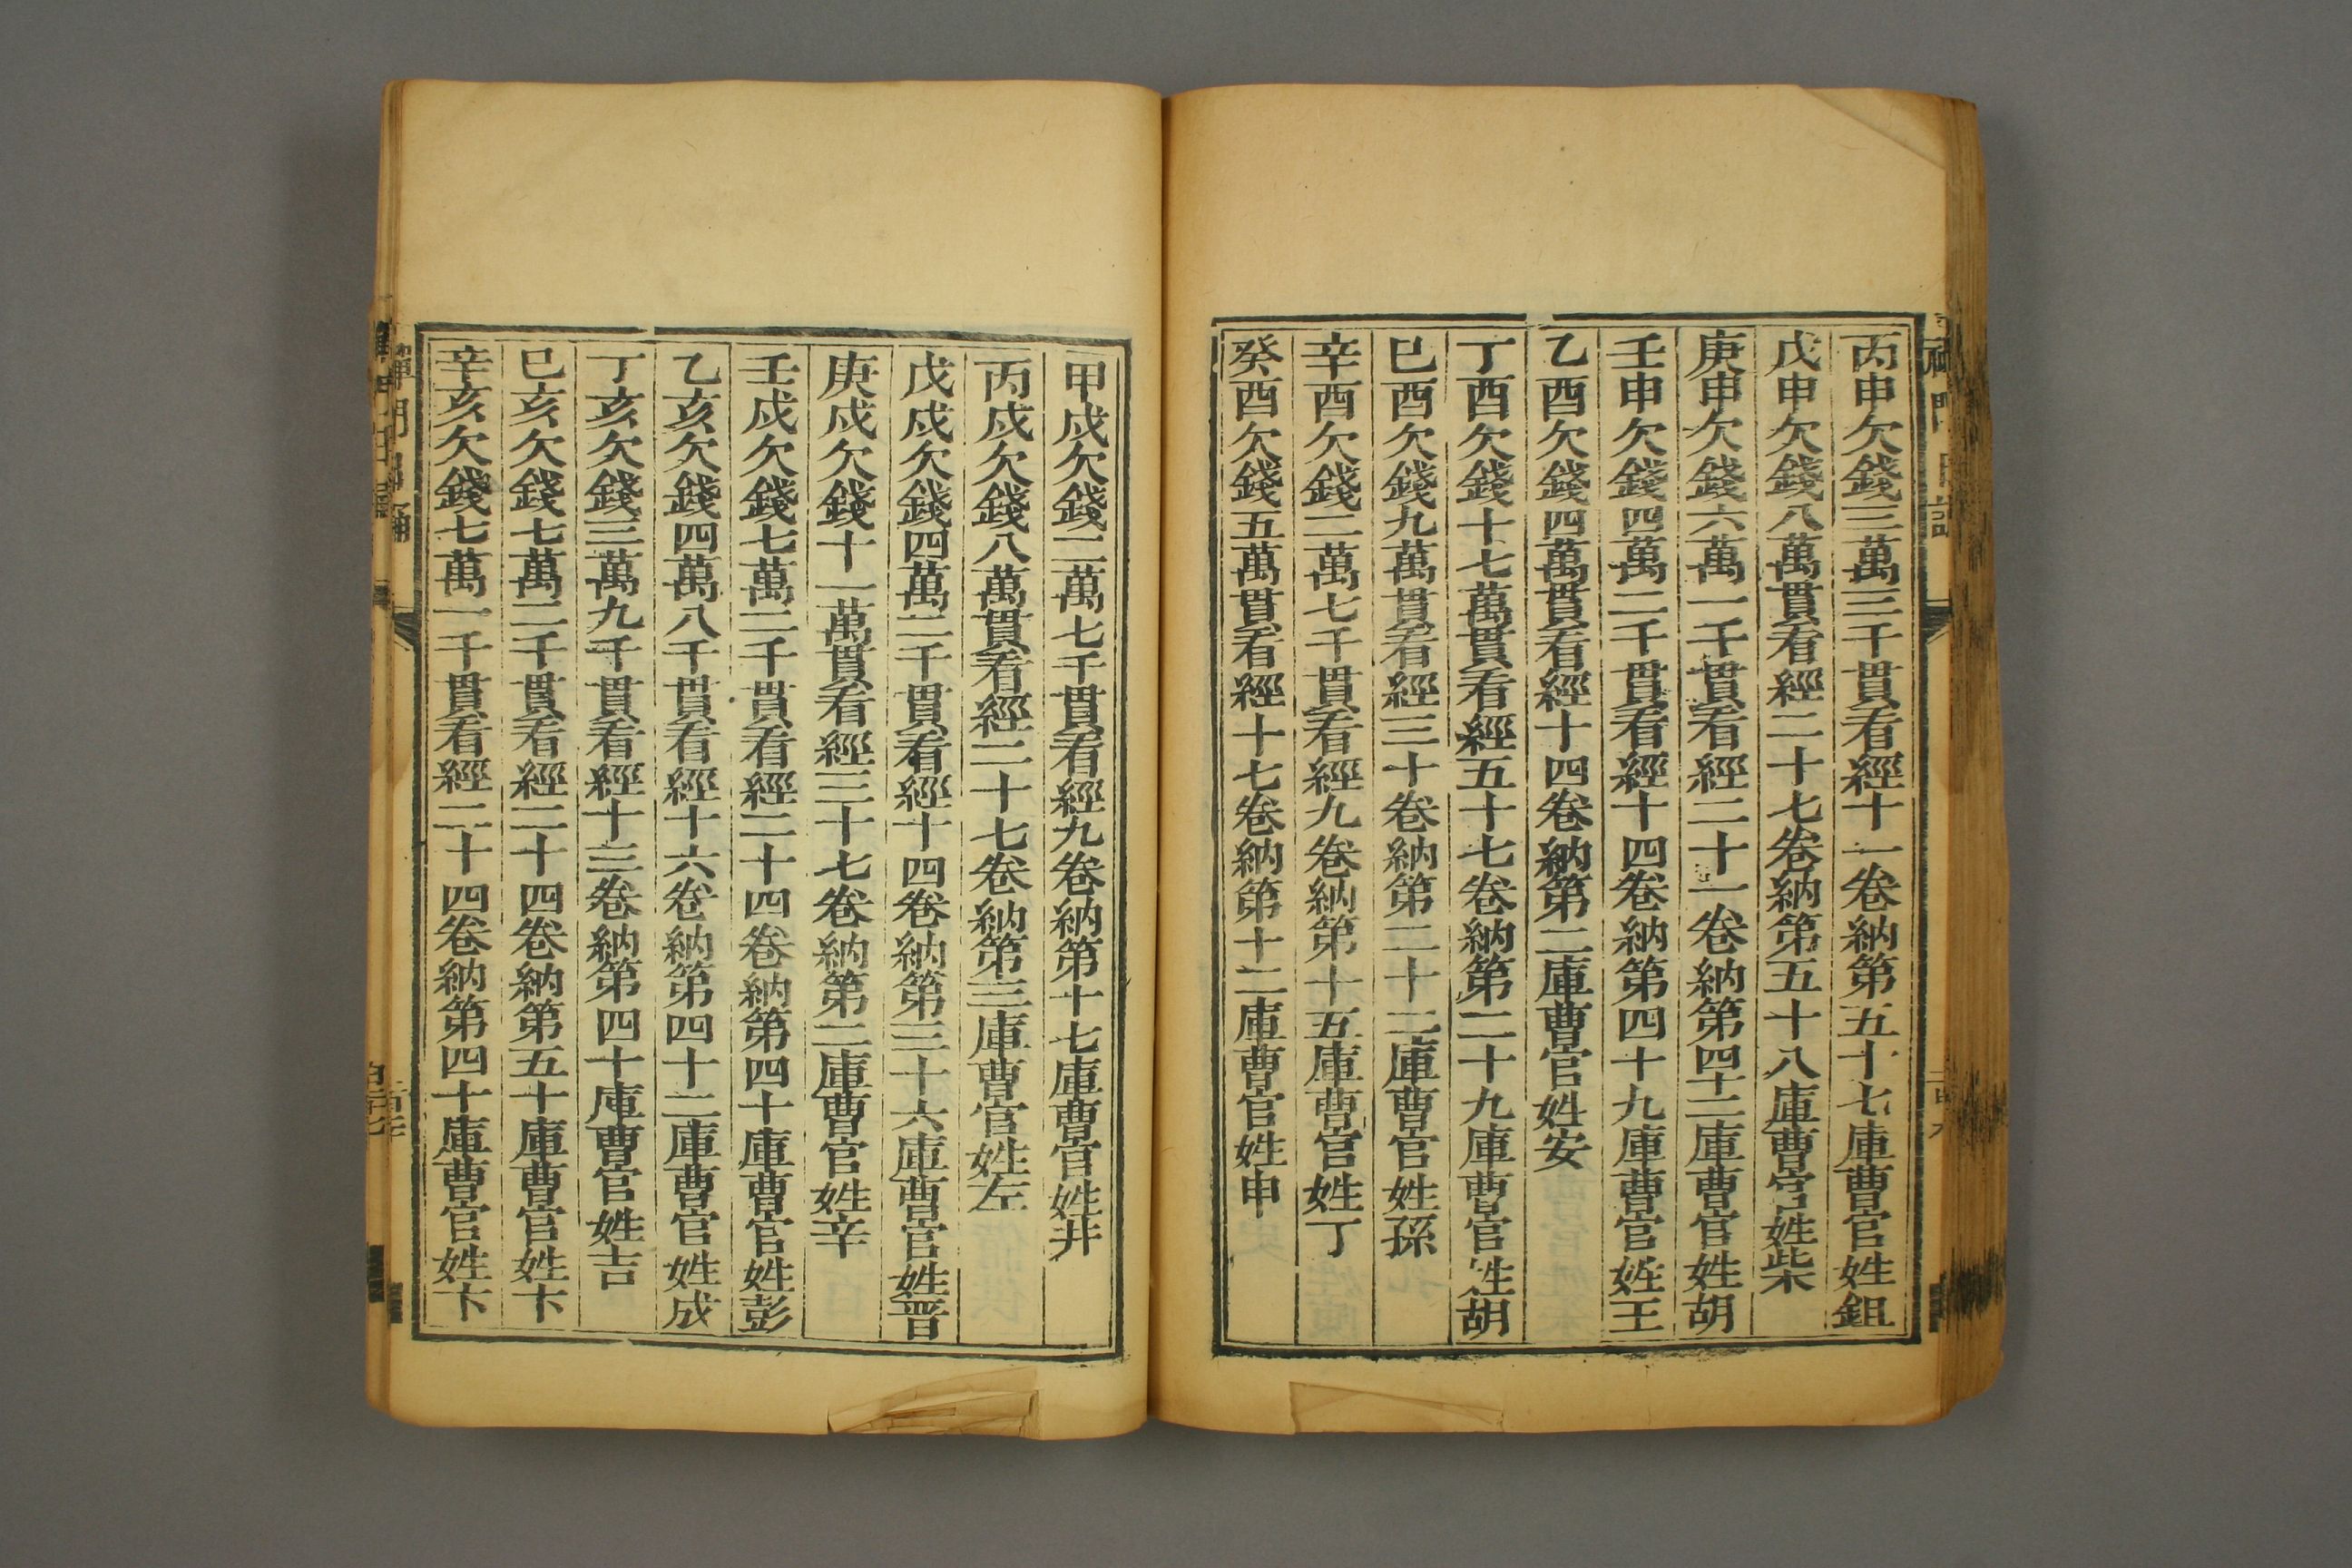 丙申欠錢三萬三千貫看經十一卷納第五十七庫曹官姓鉏
戊申欠錢八萬貫看經二十七卷納第五十八庫曹官姓柴
庚申欠錢六萬一千貫看經二十一卷納第四十二庫曹官姓胡
壬申欠錢四萬二千貫看經十四卷納第四十九庫曹官姓王
乙酉欠錢四萬貫看經十四卷納第二庫曹官姓安
丁酉欠錢十七萬貫看經五十七卷納第二十九庫曹官姓胡
巳酉欠錢九萬貫看經三十卷納第二十二庫曹官姓孫
辛酉欠錢二萬七千貫看經九卷納第十五庫曹官姓丁
癸酉欠錢五萬貫看經十七卷納第十二庫曹官姓申
甲戍欠錢二萬七千貫看經九卷納第十七庫曹官姓井
丙戍欠錢八萬貫看經二十七卷納第三庫曹官姓左
戊戍欠錢四萬二千貫看經十四卷納第三十六庫曹官姓晋
庚戍欠錢十一萬貫看經三十七卷納第二庫曹官姓辛
壬戍欠錢七萬二千貫看經二十四卷納第四十庫曹官姓彭
乙亥欠錢四萬八千貫看經十六卷納第四十二庫曹官姓成
丁亥欠錢三萬九千貫看經十三卷納第四十庫曹官姓吉
巳亥欠錢七萬二千貫看經二十四卷納第五十庫曹官姓卞
辛亥欠錢七萬一千貫看經二十四卷納第四十庫曹官姓卞
禪門日誦